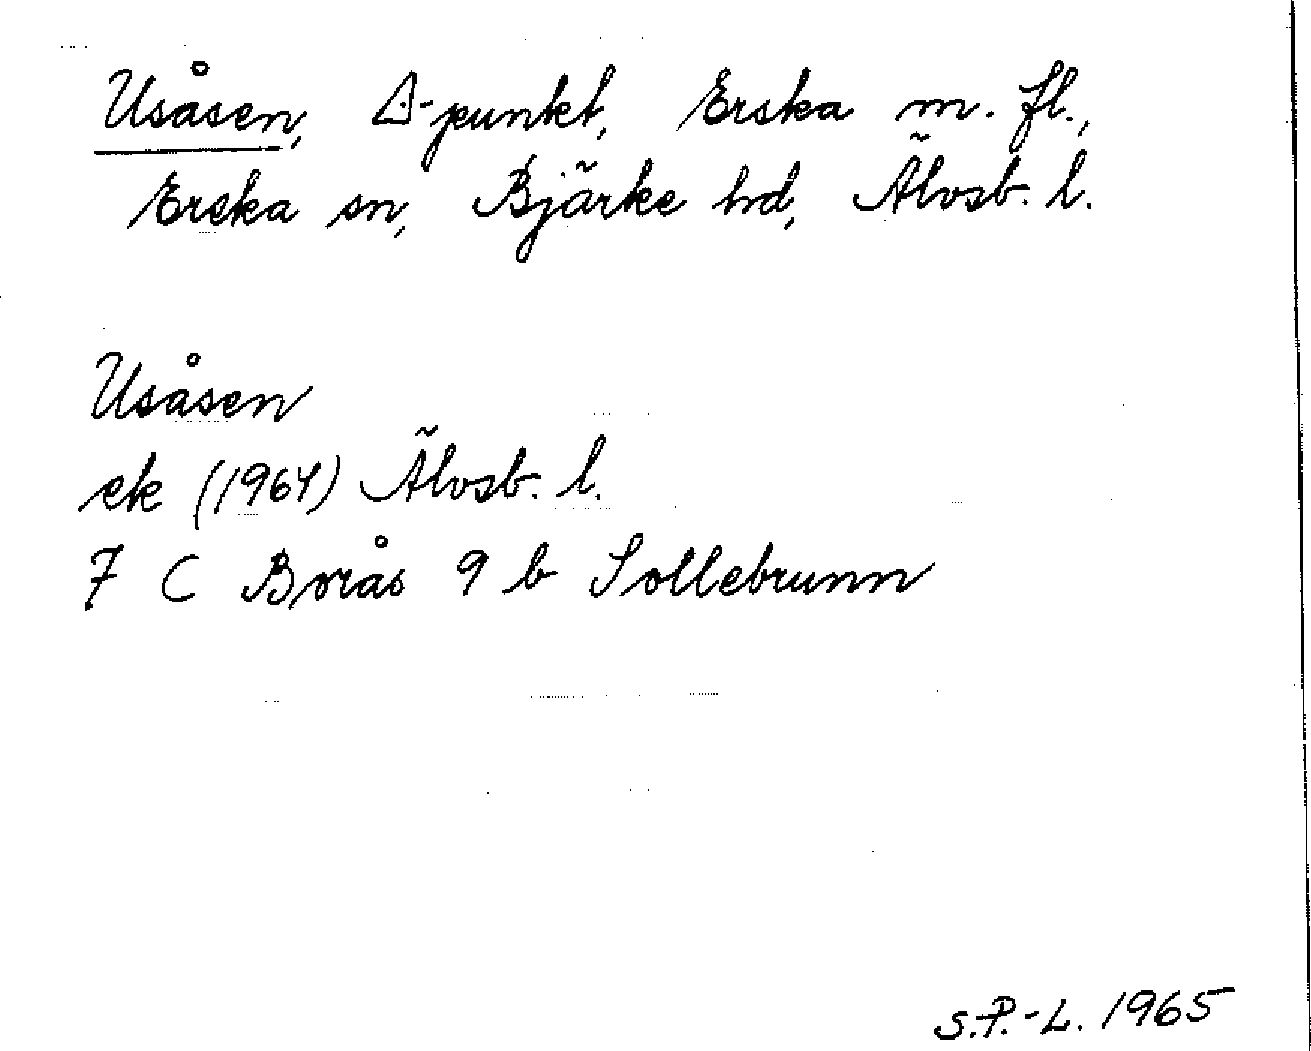 Usåsen, △-punkt, Erska m. fl.,
Erska sn, Bjärke hd, Älvsb. l.
Usåsen
ek (1964) Älvsb. l.
7 C Borås 9 b Sollebrunn
S.P.-L. 1965